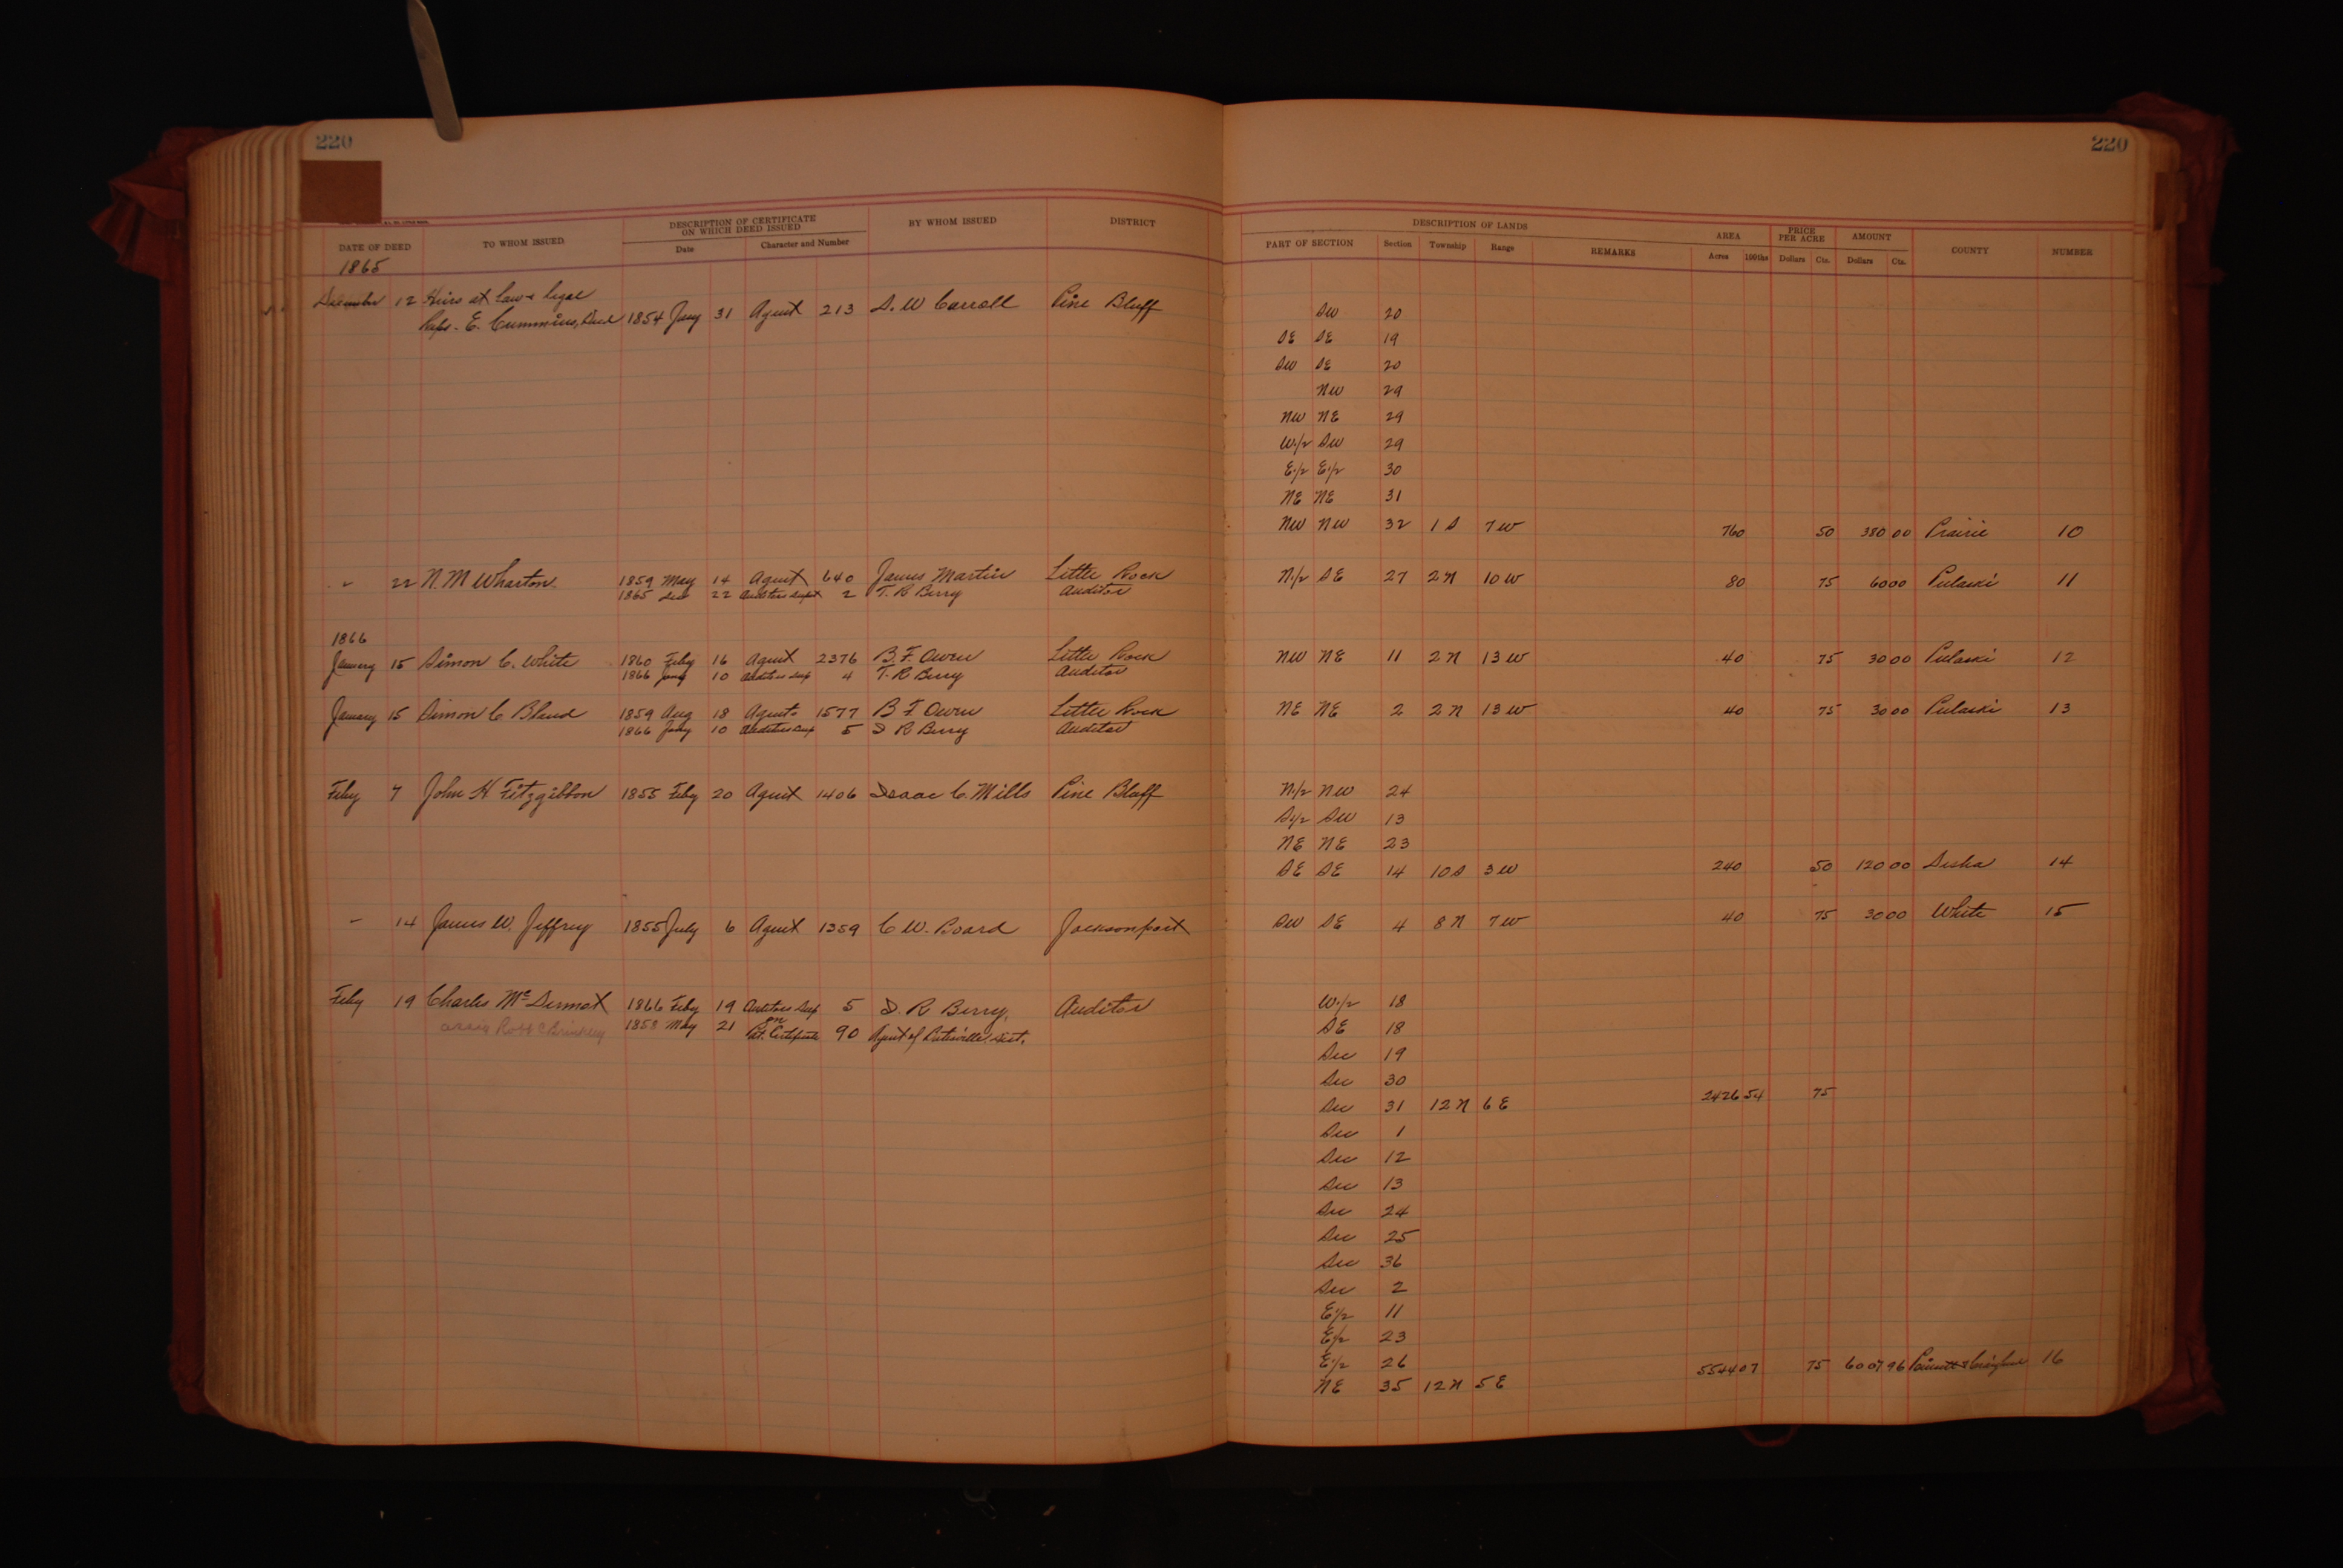 220
220
DATE OF DEED TO WHOM ISSUED DESCRIPTION OF CERTIFICATE ON WHICH DEED ISSUED Date Character and Number BY WHOM ISSUED DISTRICT
DESCRIPTION OF LANDS PART OF SECTION Section Township Range REMARKS AREA Acres 100ths PRICE PER ACRE Dollars Cts. AMOUNT Dollars Cts. COUNTY NUMBER
1865
December 12 Heirs at law & legal
Reps. E. Cummins, Decd 1854 Jany 31 Agent 213 D. W Carroll Pine Bluff SW 20
SE SE 19
SW SE 20
NW 29
NW NE 29
W1/2 SW 29
E1/2 E1/2 30
NE NE 31
NW NW 32 1 S 7 W 760 50 380 00 Prairie 10
" 22 N. M Wharton 1859 May 14 Agent 640 James Martin Little Rock N1/2 SE 27 2 N 10 W 80 75 60 00 Pulaski 11
1865 Dec 22 Auditors Dupt 2 T. R Berry Auditor
1866
January 15 Simon C. White 1860 Feby 16 Agent 2376 B. F. Owen Little Rock NW NE 11 2 N 13 W 40 75 30 00 Pulaski 12
1866 Jany 10 Auditors Dup 4 T. R Berry Auditor
January 15 Simon C Bland 1859 Aug 18 Agents 1577 B F Owen Little Rock NE NE 2 2 N 13 W 40 75 30 00 Pulaski 13
1866 Jany 10 Auditors Dup 5 I R Berry Auditor
Feby 7 John H Fitzgibbon 1855 Feby 20 Agent 1406 Isaac C. Mills Pine Bluff N1/2 NW 24
S1/2 SW 13
NE NE 23
SE SE 14 10 S 3 W 240 50 120 00 Desha 14
" 14 James W. Jeffrey 1855 July 6 Agent 1359 C W. Board Jacksonport SW SE 4 8 N 7 W 40 75 30 00 White 15
Feby 19 Charles McDermot 1866 Feby 19 Auditors Dup 5 I. R Berry, Auditor W1/2 18
Robt C Brinkley 1858 May 21 on Pat. Certificate 90 Agent of Batesville Dist. SE 18
Sec 19
Sec 30
Sec 31 12 N 6 E 2426 54 75
Sec 1
Sec 12
Sec 13
Sec 24
Sec 25
Sec 36
Sec 2
E1/2 11
E1/2 23
E1/2 26
NE 35 12 N 5 E 5544 07 75 6007 96 Poinsett & Craighead 16